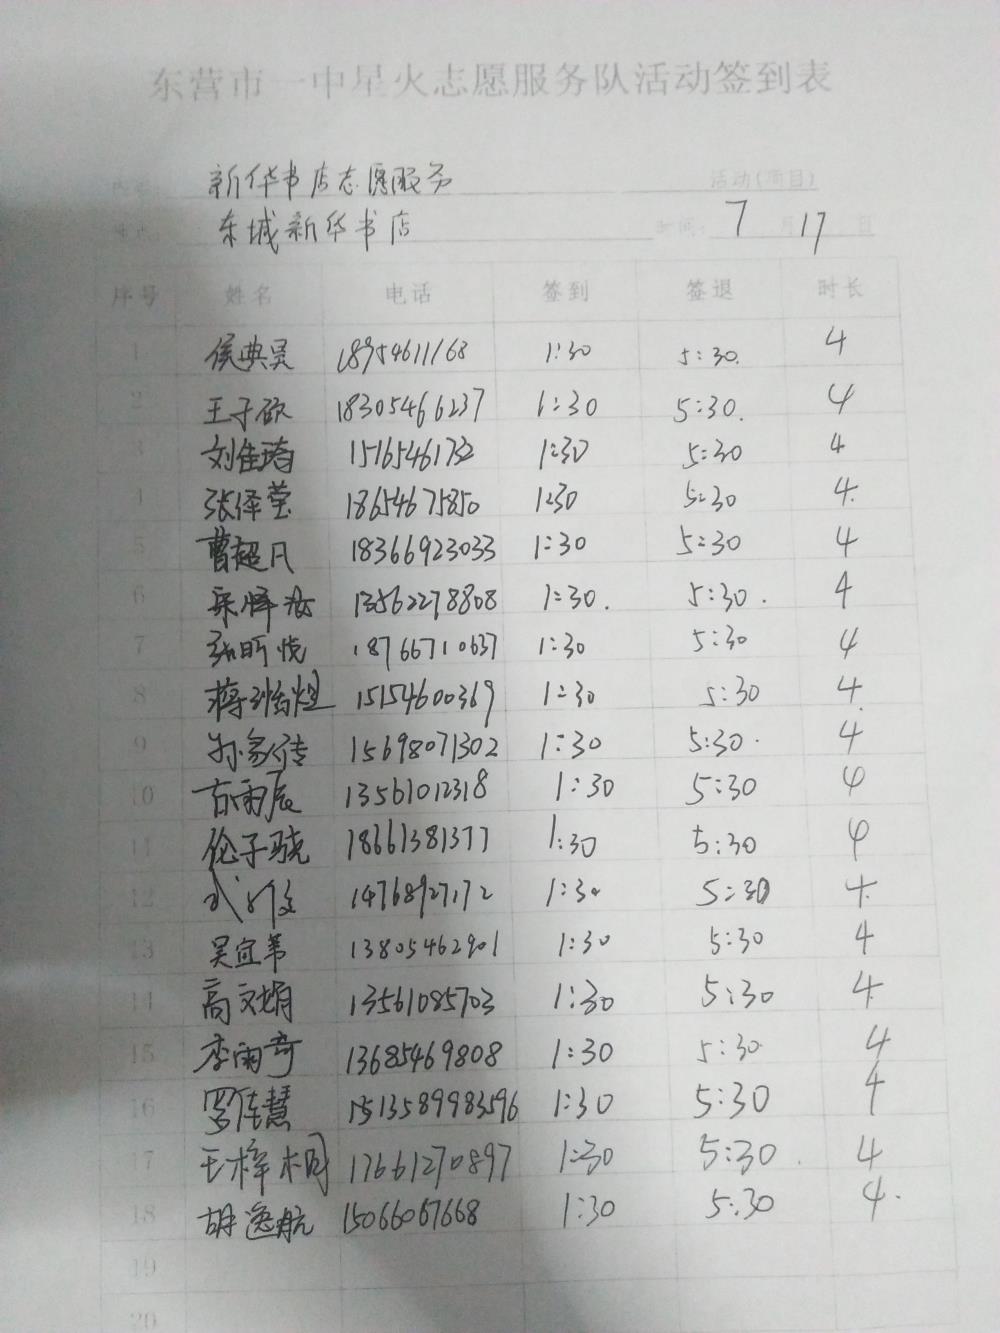 东营市一中星火志愿服务队活动签到表
新华书店志愿服务 活动(项目)
东城新华书店 时间: 7 月 17 日
序号 姓名 电话 签到 签退 时长
1 侯典昊 18954611168 1:30 5:30 4
2 王子欣 18305466237 1:30 5:30 4
3 刘佳琦 1:30 5:30 4
4 张泽莹 18654675850 1:30 5:30 4
5 曹超凡 18366923033 1:30 5:30 4
6 13562278808 1:30 5:30 4
7 张昕悦 18766710637 1:30 5:30 4
8 15154600369 1:30 5:30 4
9 孙家传 15698071302 1:30 5:30 4
10 古雨辰 13561012318 1:30 5:30 4
11 伦子骁 18661381377 1:30 5:30 4
12 14768927172 1:30 5:30 4
13 吴宜苇 13805462901 1:30 5:30 4
14 高文娟 13561085703 1:30 5:30 4
15 李雨奇 13685469808 1:30 5:30 4
16 罗佳慧 1513589983596 1:30 5:30 4
17 王梓桐 17661270897 1:30 5:30 4
18 胡逸航 15066067668 1:30 5:30 4
19
20